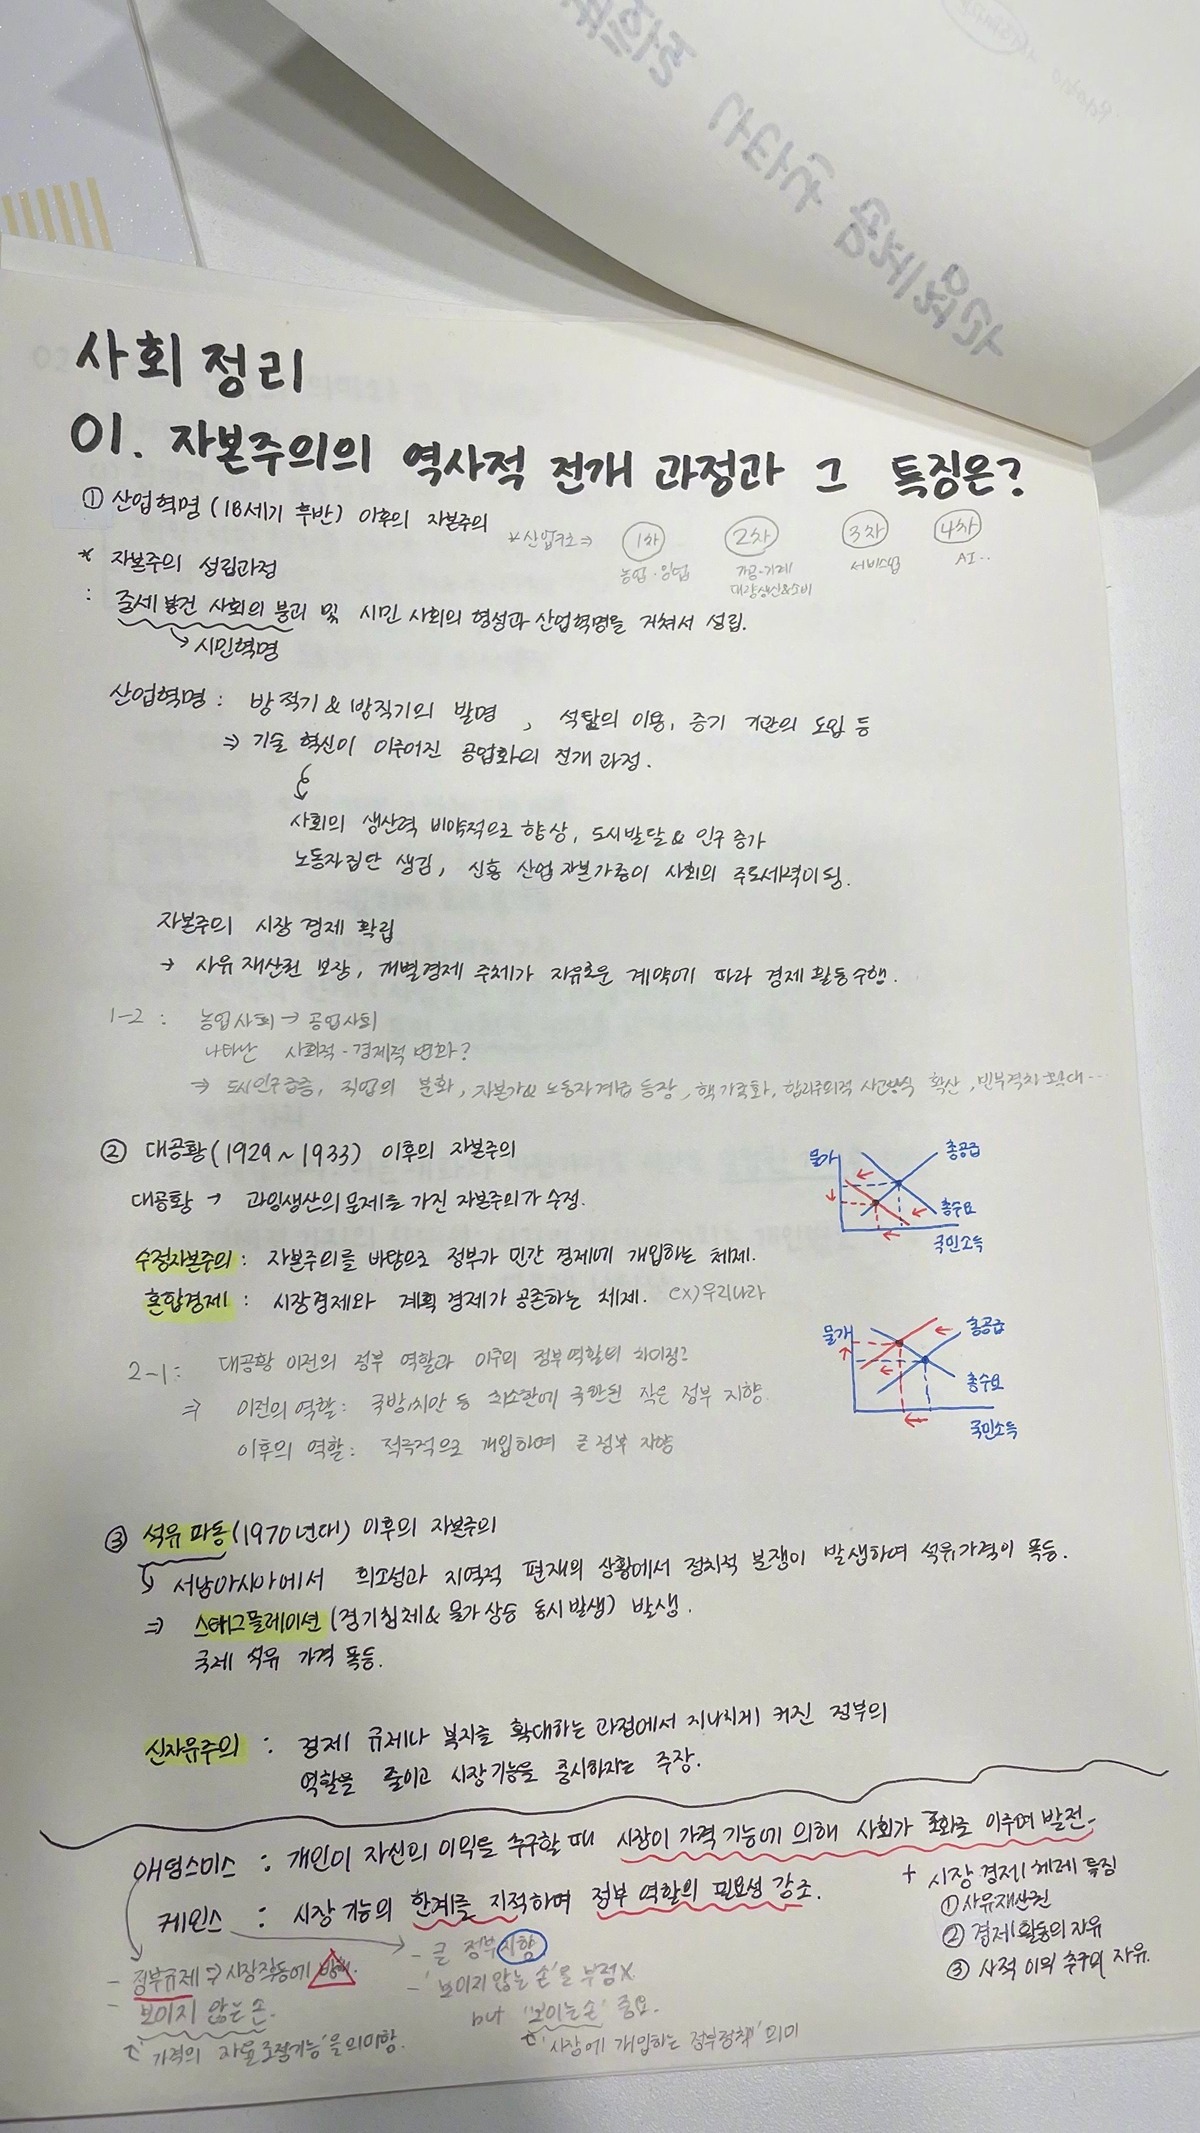 사회 정리
01. 자본주의의 역사적 전개 과정과 그 특징은?
① 산업혁명 (18세기 후반) 이후의 자본주의
*산업구조⇒ 1차 2차 3차 4차
농업·임업 가공·기계 서비스업 AI··
대량생산&소비
* 자본주의 성립과정
: 중세 봉건 사회의 붕괴 및 시민 사회의 형성과 산업혁명을 거쳐서 성립.
↘시민혁명
산업혁명 : 방적기 & 방직기의 발명 , 석탄의 이용, 증기 기관의 도입 등
⇒ 기술 혁신이 이루어진 공업화의 전개 과정.
사회의 생산력 비약적으로 향상, 도시발달 & 인구 증가
노동자집단 생김, 신흥 산업자본가층이 사회의 주도세력이 됨.
자본주의 시장 경제 확립
→ 사유 재산권 보장, 개별경제 주체가 자유로운 계약에 따라 경제 활동수행.
1-2 : 농업사회 → 공업사회
나타난 사회적·경제적 변화?
⇒ 도시인구급증, 직업의 분화, 자본가& 노동자계급 등장, 핵가족화, 합리주의적 사고방식 확산, 빈부격차 확대···
② 대공황 (1929 ~ 1933) 이후의 자본주의
대공황 → 과잉생산의 문제를 가진 자본주의가 수정.
수정자본주의 : 자본주의를 바탕으로 정부가 민간 경제에 개입하는 체제.
혼합경제 : 시장경제와 계획 경제가 공존하는 체제. ex) 우리나라
물가
총공급
총수요
국민소득
2-1 : 대공황 이전의 정부 역할과 이후의 정부역할의 차이점?
⇒ 이전의 역할 : 국방,치안 등 최소한에 국한된 작은 정부 지향.
이후의 역할 : 적극적으로 개입하여 큰정부 지향
물가
총공급
총수요
국민소득
③ 석유 파동 (1970년대) 이후의 자본주의
↳ 서남아시아에서 희소성과 지역적 편재의 상황에서 정치적 분쟁이 발생하여 석유가격이 폭등.
⇒ 스태그플레이션 (경기침체& 물가상승 동시발생) 발생.
국제 석유 가격 폭등.
신자유주의 : 경제 규제나 복지를 확대하는 과정에서 지나치게 커진 정부의
역할을 줄이고 시장기능을 중시하자는 주장.
애덤스미스 : 개인이 자신의 이익을 추구할 때 시장이 가격 기능에 의해 사회가 조화로 이루며 발전.
케인스 : 시장 기능의 한계를 지적하며 정부 역할의 필요성 강조.
+ 시장 경제 체제 특징
① 사유재산권
② 경제활동의 자유
③ 사적 이익 추구의 자유.
- 정부규제 ⇒ 시장작동에 방해.
- 보이지 않는 손.
↑ '가격의 자율조절기능'을 의미함.
- 큰 정부 지향
- '보이지 않는 손'을 부정X
but '보이는 손' 중요.
↑ '시장에 개입하는 정부정책' 의미